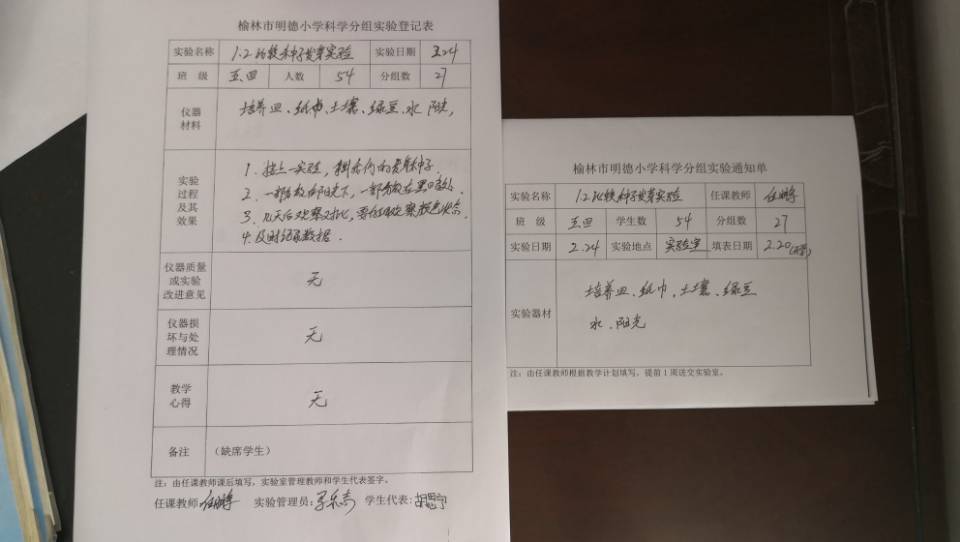 榆林市明德小学科学分组实验登记表
实验名称 1.2比较种子发芽实验 实验日期 2.24
班 级 五.四 人数 54 分组数 27
仪器材料 培养皿、纸巾、土壤、绿豆、水 阳光,
实验过程及其效果
1. 接上一实验,
2. 一部分放在阳光下,一部分放在黑暗处.
3. 几天后观察对比,
4. 及时记录数据.
仪器质量或实验改进意见 无
仪器损坏与处理情况 无
教学心得 无
备注 (缺席学生)
注:由任课教师课后填写,实验室管理教师和学生代表签字。
任课教师: 任鹏 实验管理员: 学生代表:
榆林市明德小学科学分组实验通知单
实验名称 1.2比较种子发芽实验 任课教师 任鹏
班 级 五.四 学生数 54 分组数 27
实验日期 2.24 实验地点 实验室 填表日期 2.20
实验器材 培养皿、纸巾、土壤、绿豆
水、阳光
注:由任课教师根据教学计划填写,提前1周送交实验室。